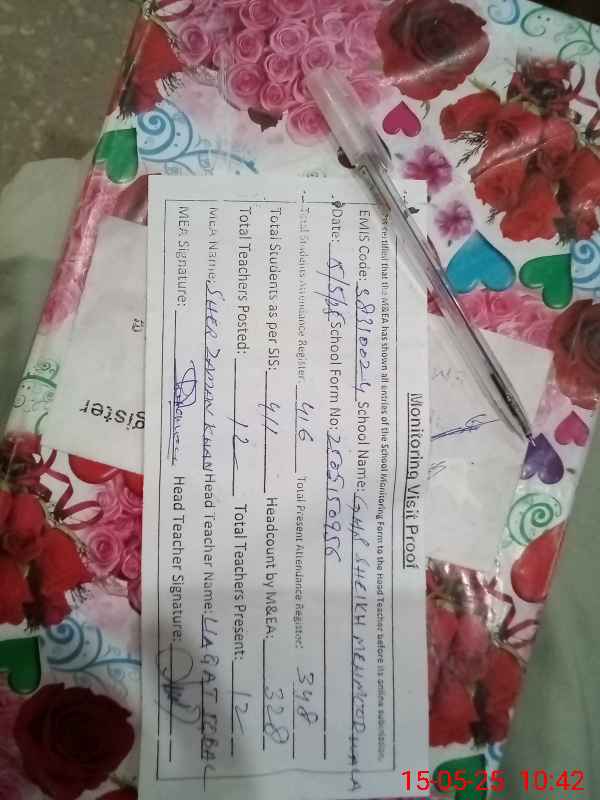 Monitoring Visit Proof
certified that the M&EA has shown all entries of the School Monitoring Form to the Head Teacher before its online submission.
EMIS Code: 38310024 School Name: GHS SHEIKH MEHMOOD WALA
Date: 15/5/25 School Form No: 2505150956
Total Students Attendance Register: 416 Total Present Attendance Register: 348
Total Students as per SIS: 411 Headcount by M&EA: 328
Total Teachers Posted: 12 Total Teachers Present: 12
MEA Name: SHER ZAMAN KHAN Head Teacher Name: LIAQAT IQBAL
MEA Signature: Head Teacher Signature:
gister
15-05-25 10:42